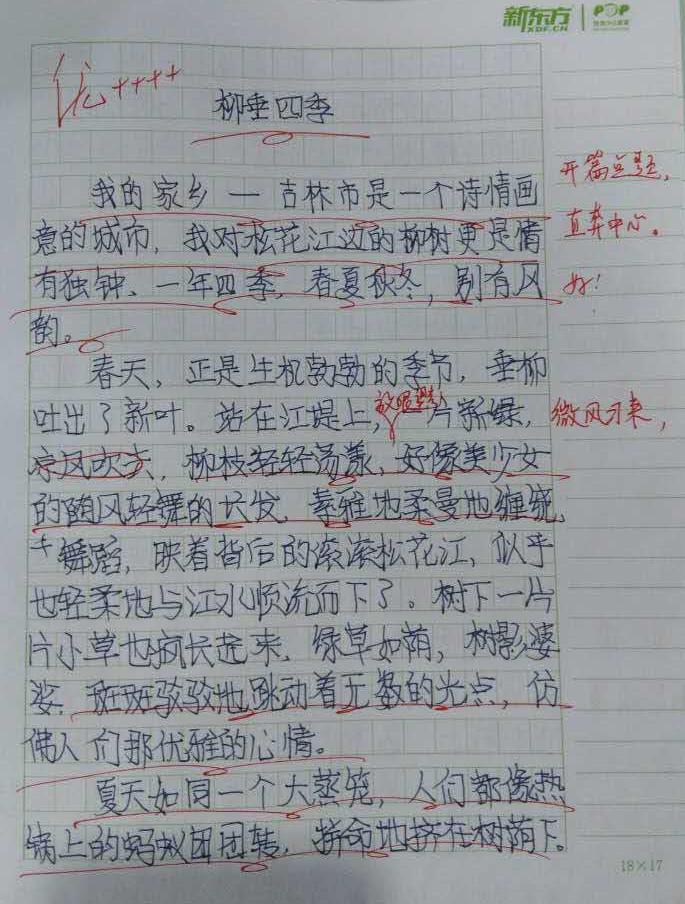 新东方 XDF.CN POP
优++++
柳垂四季
我的家乡一吉林市是一个诗情画
开篇点题,
意的城市,我对松花江边的柳树更是情
直奔中心。
有独钟、一年四季,春夏秋冬,别有风
好!
韵。
春天,正是生机勃勃的季节,垂柳
吐出了新叶。站在江堤上,放眼望去一片新绿,
微风习来,
凉风吹去,柳枝轻轻荡漾,好像美少女
的随风轻舞的长发,素雅地柔曼地缠绕,
舞蹈,映着背后的滚滚松花江,似乎
也轻柔地与江水顺流而下了。树下一片
片小草也疯长起来,绿草如荫,树影婆
娑,斑斑驳驳地跳动着无数的光点,仿
佛人们那优雅的心情。
夏天如同一个大蒸笼,人们都像热
锅上的蚂蚁团团转,拼命地挤在树荫下。
18×17